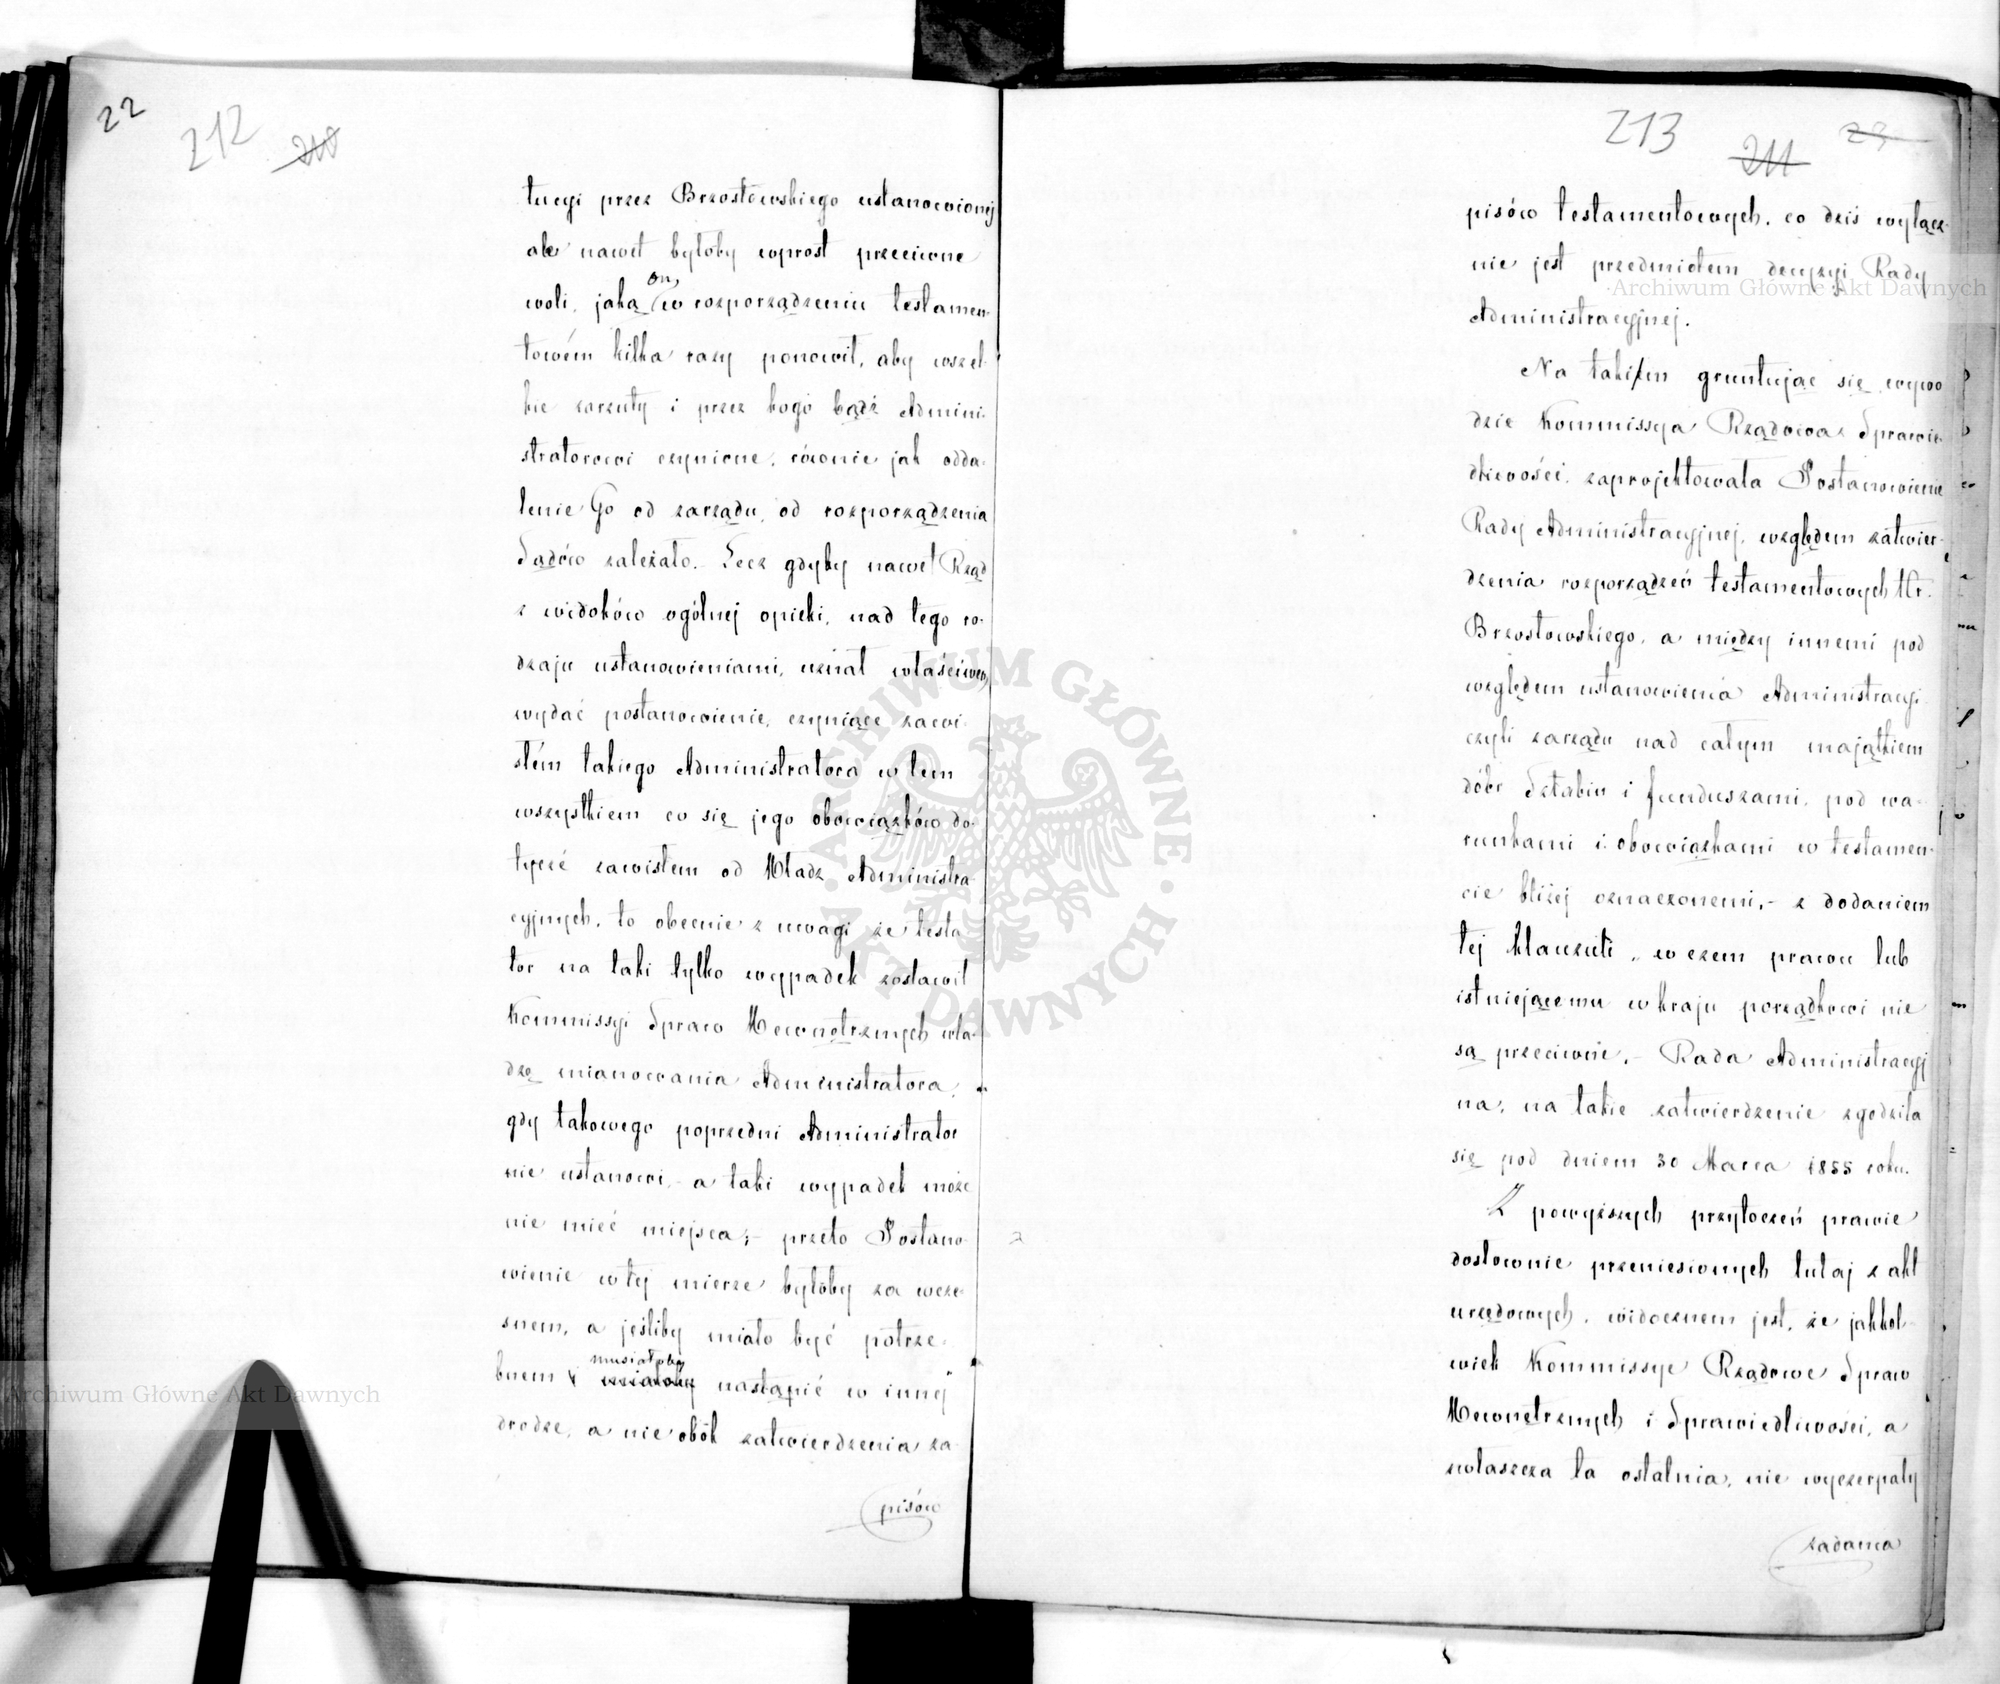 22
212
210
tucyi przez Brzostowskiego ustanowionej
ale nawet byłoby wprost przeciwne
woli, jaką on, w rozporządzeniu testamen-
towém kilka razy ponowił, aby wszel-
kie zarzuty i przez kogo bądź Admini-
stratorowi czynione, równie jak odda-
lenie Go od zarządu, od rozporządzenia
Sądów zależało. Lecz gdyby nawet Rząd
z widoków ogólnej opieki, nad tego ro-
dzaju ustanowieniami, uznał właściwem
wydać postanowienie, czyniące zawi-
słém takiego Administratora w tem
wszystkiem co się jego obowiązków do-
tyczé zawisłem od Władz Administra-
cyjnych, to obecnie z uwagi że testa
tor na taki tylko wypadek zostawił
Kommissyi Spraw Wewnętrznych wła-
dzę mianowania Administratora,
gdy takowego poprzedni Administrator
nie ustanowi, - a taki wypadek może
nie mieć miejsca; - przeto Postano-
wienie w tej mierze byłoby za wcze-
snem, a jeśliby miało być potrze-
bnem musiałoby nastąpić w innej
drodze, a nie obók zatwierdzenia za-
pisów
213
211
23
pisów testamentowych, co dziś wyłącz-
nie jest przedmiotem decyzyi Rady
Administracyjnej.
Na takim gruntując się wywo
dzie Kommissya Rządowa Sprawie-
dliwości, zaprojektowała Postanowienie
Rady Administracyjnej, względem zatwier-
dzenia rozporządzeń testamentowych Hr.
Brzostowskiego, a między innemi pod
względem ustanowienia Administracyi
czyli zarządu nad całym majątkiem
dóbr Sztabin i funduszami, pod wa-
runkami i obowiązkami w testamen-
cie bliżej oznaczonemi, - z dodaniem
tej klauzuli „w czem prawu lub
istniejącemu w kraju porządkowi nie
są przeciwne. - Rada Administracyj
na, na takie zatwierdzenie zgodziła
się pod dniem 30 Marca 1855 roku.
Z powyższych przytoczeń prawie
dosłownie przeniesionych tutaj z akt
urzędowych, widocznem jest, że jakkol-
wiek Kommissye Rządowe Spraw
Wewnętrznych i Sprawiedliwości, a
zwłaszcza ta ostatnia, nie wyczerpały
zadania
Archiwum Główne Akt Dawnych
Archiwum Główne Akt Dawnych
ARCHIWUM GŁÓWNE AKT DAWNYCH